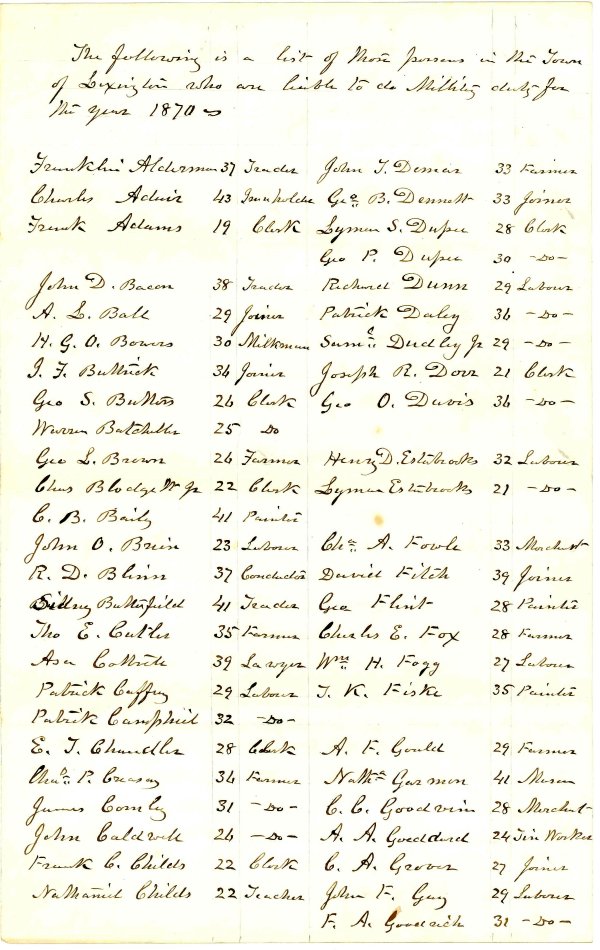 The following is a list of those persons in the Town
of Lexington who are liable to do Military duty for
the year 1870
Franklin Alderman 37 Trader John T. Demar 33 Farmer
Charles Adair 43 Ironholder Geo B. Dennett 33 Joiner
Frank Adams 19 Clerk Lyman S. Dupee 28 Clerk
Geo P. Dupee 30 -Do-
John D. Bacon 38 Trader Richard Dunn 29 Labour
A. L. Ball 29 Joiner Patrick Daley 36 -Do-
H. G. O. Bowers 30 Milkman Saml Dudley Jr 29 -Do-
J. F. Buttrick 34 Joiner Joseph R. Dorr 21 Clerk
Geo S. Butters 26 Clerk Geo O. Davis 36 -Do-
Warren Batcheller 25 Do
Geo L. Brown 26 Farmer Henry D. Estabrooks 32 Labour
Chas Blodgett Jr 22 Clerk Lyman Estabrooks 21 -Do-
C. B. Baily 41 Painter
John O. Brien 23 Labour Chas A. Fowle 33 Merchant
R. D. Blinn 37 Conductor David Fitch 39 Joiner
Sidney Butterfield 41 Trader Geo Flint 28 Painter
Tho E. Cutler 35 Farmer Charles E. Fox 28 Farmer
Asa Cottrell 39 Lawyer Wm H. Fogg 27 Labour
Patrick Caffrey 29 Labour T. K. Fiske 35 Painter
Patrick Camphill 32 -Do-
E. T. Chandler 28 Clerk A. F. Gould 29 Farmer
P. Creasay 34 Farmer Nathl Garmon 41 Mason
James Comley 31 -Do- C. C. Goodwin 28 Merchant
John Caldwell 26 -Do- A. A. Goddard 24 Tin Worker
Frank C. Childs 22 Clerk C. A. Grover 27 Joiner
Nathaniel Childs 22 Teacher John F. Guy 29 Labour
F. A. Goodrich 31 -Do-